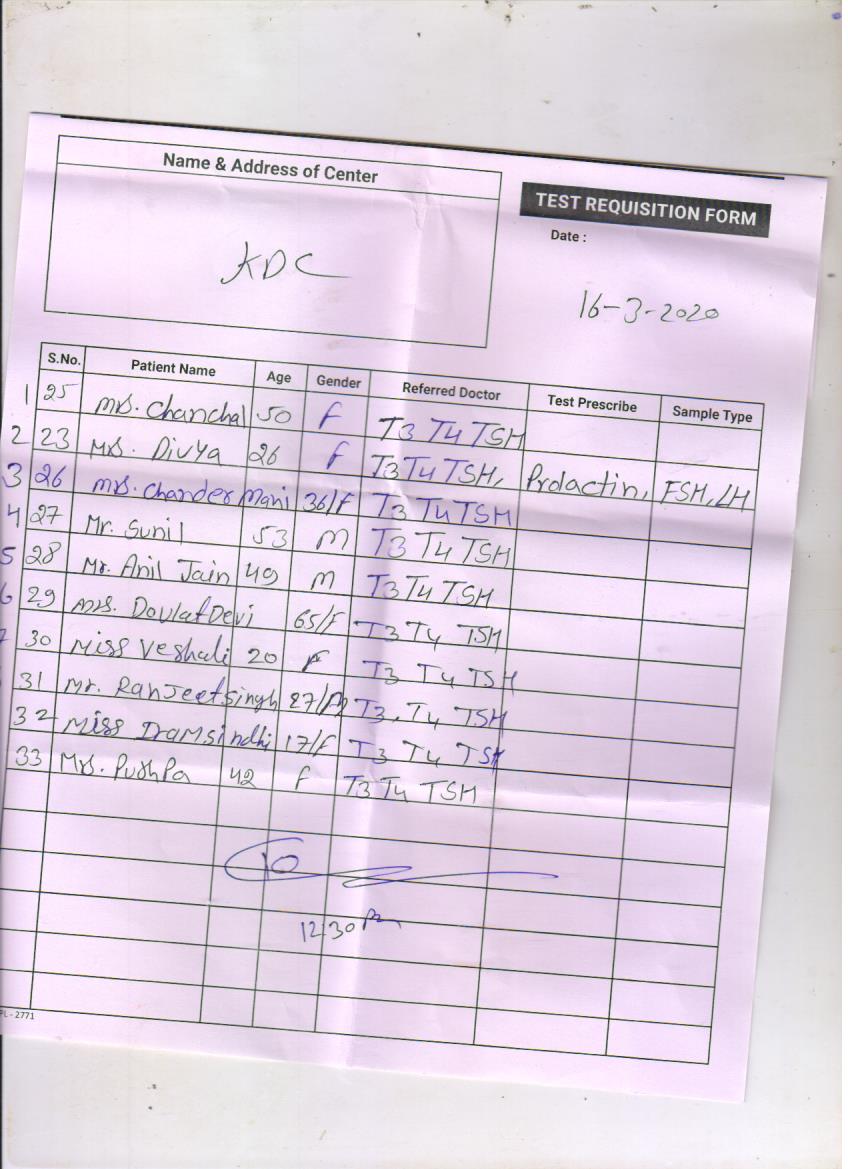 Name & Address of Center
TEST REQUISITION FORM
Date :
KDC
16-3-2020
S.No. Patient Name Age Gender Referred Doctor Test Prescribe Sample Type
1 25 Mrs. Chanchal 50 F T3 T4 TSH
2 23 Mrs. Divya 26 F T3 T4 TSH, Prolactin, FSH, LH
3 26 Mrs. Chander Mani 36/F T3 T4 TSH
4 27 Mr. Sunil 53 M T3 T4 TSH
5 28 Mr. Anil Jain 49 M T3 T4 TSH
6 29 Mrs. Doulat Devi 65/F T3 T4 TSH
30 Miss Veshali 20 F T3 T4 TSH
31 Mr. Ranjeet singh 27/M T3, T4 TSH
32 Miss Iramsindhi 17/F T3 T4 TSH
33 Mrs. Pushpa 42 F T3 T4 TSH
10
12:30 Pm
PL - 2771